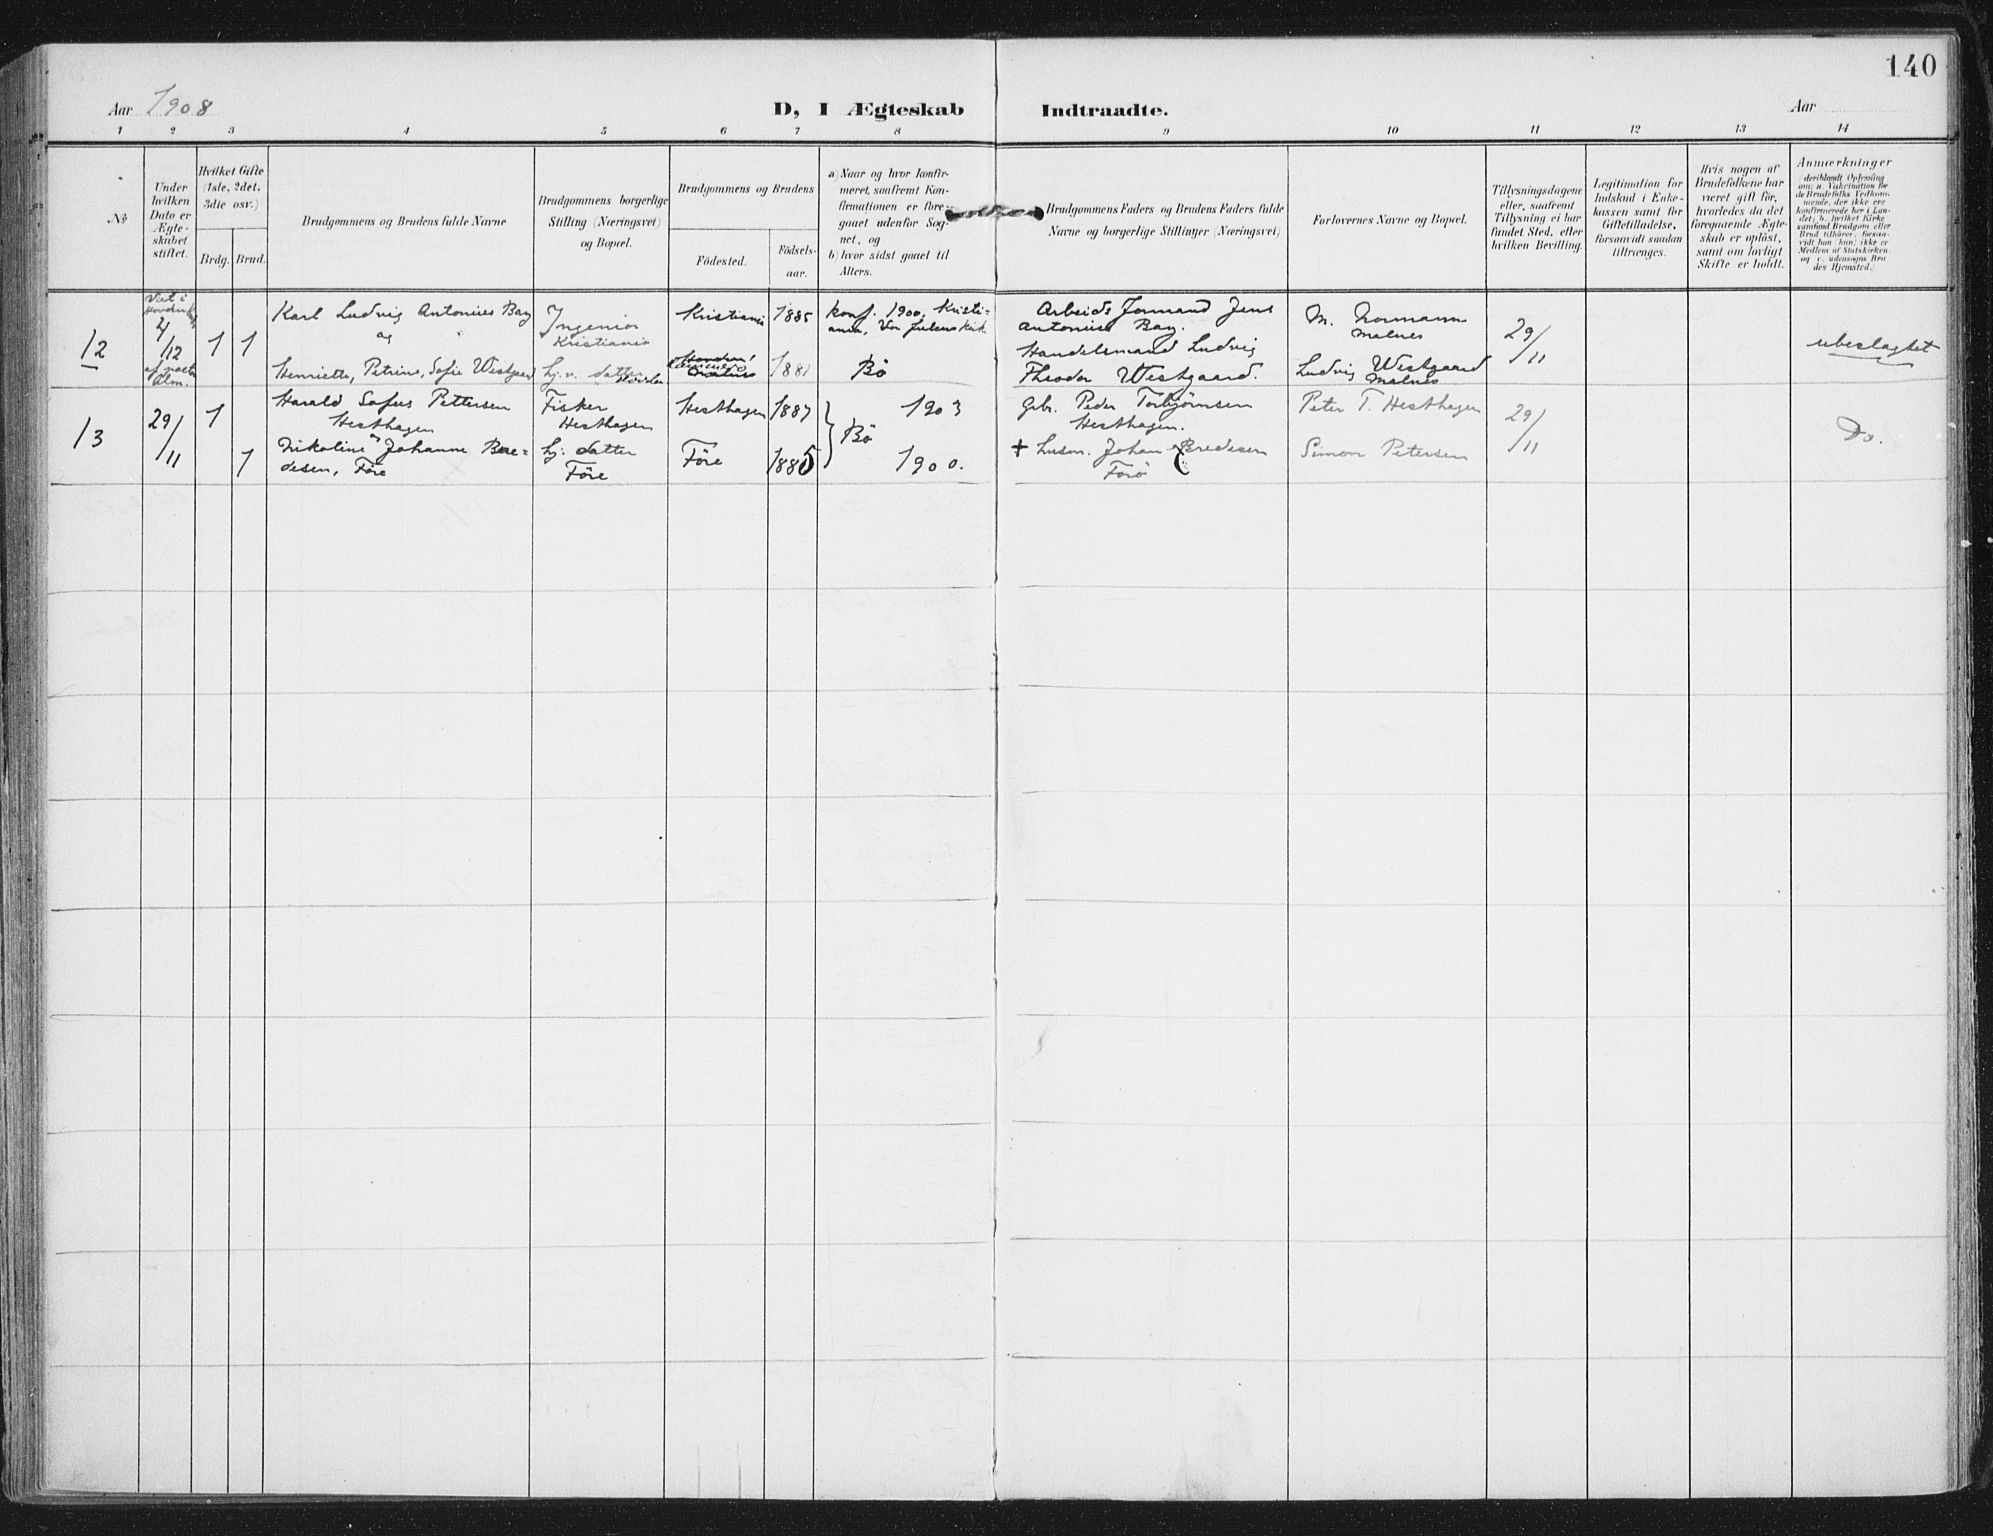 140
Aar 1908
D, I Ægteskab Indtraadte.
Aar
1 2 3 4 5 6 7 8 9 10 11 12 13 14
№
Under
hvilken
Dato er
Ægte-
skabet
stiftet.
Hvilket Gifte
(1ste, 2det,
3die osv.)
Brdg. Brud.
Brudgommens og Brudens fulde Navne
Brudgommens borgerlige
Stilling (Næringsvei)
og Bopæl.
Brudgommens og Brudens
Födested.
Födsels-
aar.
a) Naar og hvor konfir-
meret, saafremt Kon-
firmationen er fore-
gaaet udenfor Sog-
net, og
b) hvor sidst gaaet til
Alters.
Brudgommens Faders og Brudens Faders fulde
Navne og borgerlige Stillinger (Næringsvei)
Forlovernes Navne og Bopæl.
Tillysningsdagene
eller, saafremt
Tillysning ei har
fundet Sted, efter
hvilken Bevilling.
Legitimation for
Indskud i Enke-
kassen samt for
Giftetilladelse,
forsaavidt saadan
tiltrænges.
Hvis nogen af
Brudefolkene har
været gift før,
hvorledes da det
foregaaende Ægte-
skab er oplöst,
samt om lovligt
Skifte er holdt.
Anmærkninger
(deriblandt Oplysning
om: a. Vakcination for
de Brudefolks Vedkom-
mende, der ikke ere
konfirmerede her i Lan-
det; b. hvilket Kirke
samfund Brudgom eller
Brud tilhörer, forsaa-
vidt han (hun) ikke er
Medlem af Statskirken
og c. udensogns Bru
des Hjemsted.)
12
Viet i
2/12
1 1
Karl Ludvig Antonius Bay
og
Henriette, Petrine, Sofie Westgaard
Ingeniør
Kristiania
hj. v. datter
Kristiania 1885
1881
konf. 1900, Kristi-
ania, Vor
Bø
Arbeids Formand Jens
Antonius Bay.
Handelsmand Ludvig
Theodor Westgaard.
M. Normann
Malnes
Ludvig Westgaard
Malnes
29/11
ubeslægtet
13
29/11
1
1
Harald Sofus Pettersen
Hesthagen
Nikoline Johanne Bre-
desen, Føre
Fisker
Hesthagen
hj. datter
Føre
Hesthagen 1887
Føre 1885
Bø
1903
1900.
Grb. Peder Torbjørnsen
Hesthagen.
+ Husm. Johan Bredesen
Førø
Peter T. Hesthagen
Simon Petersen
29/11
Do.